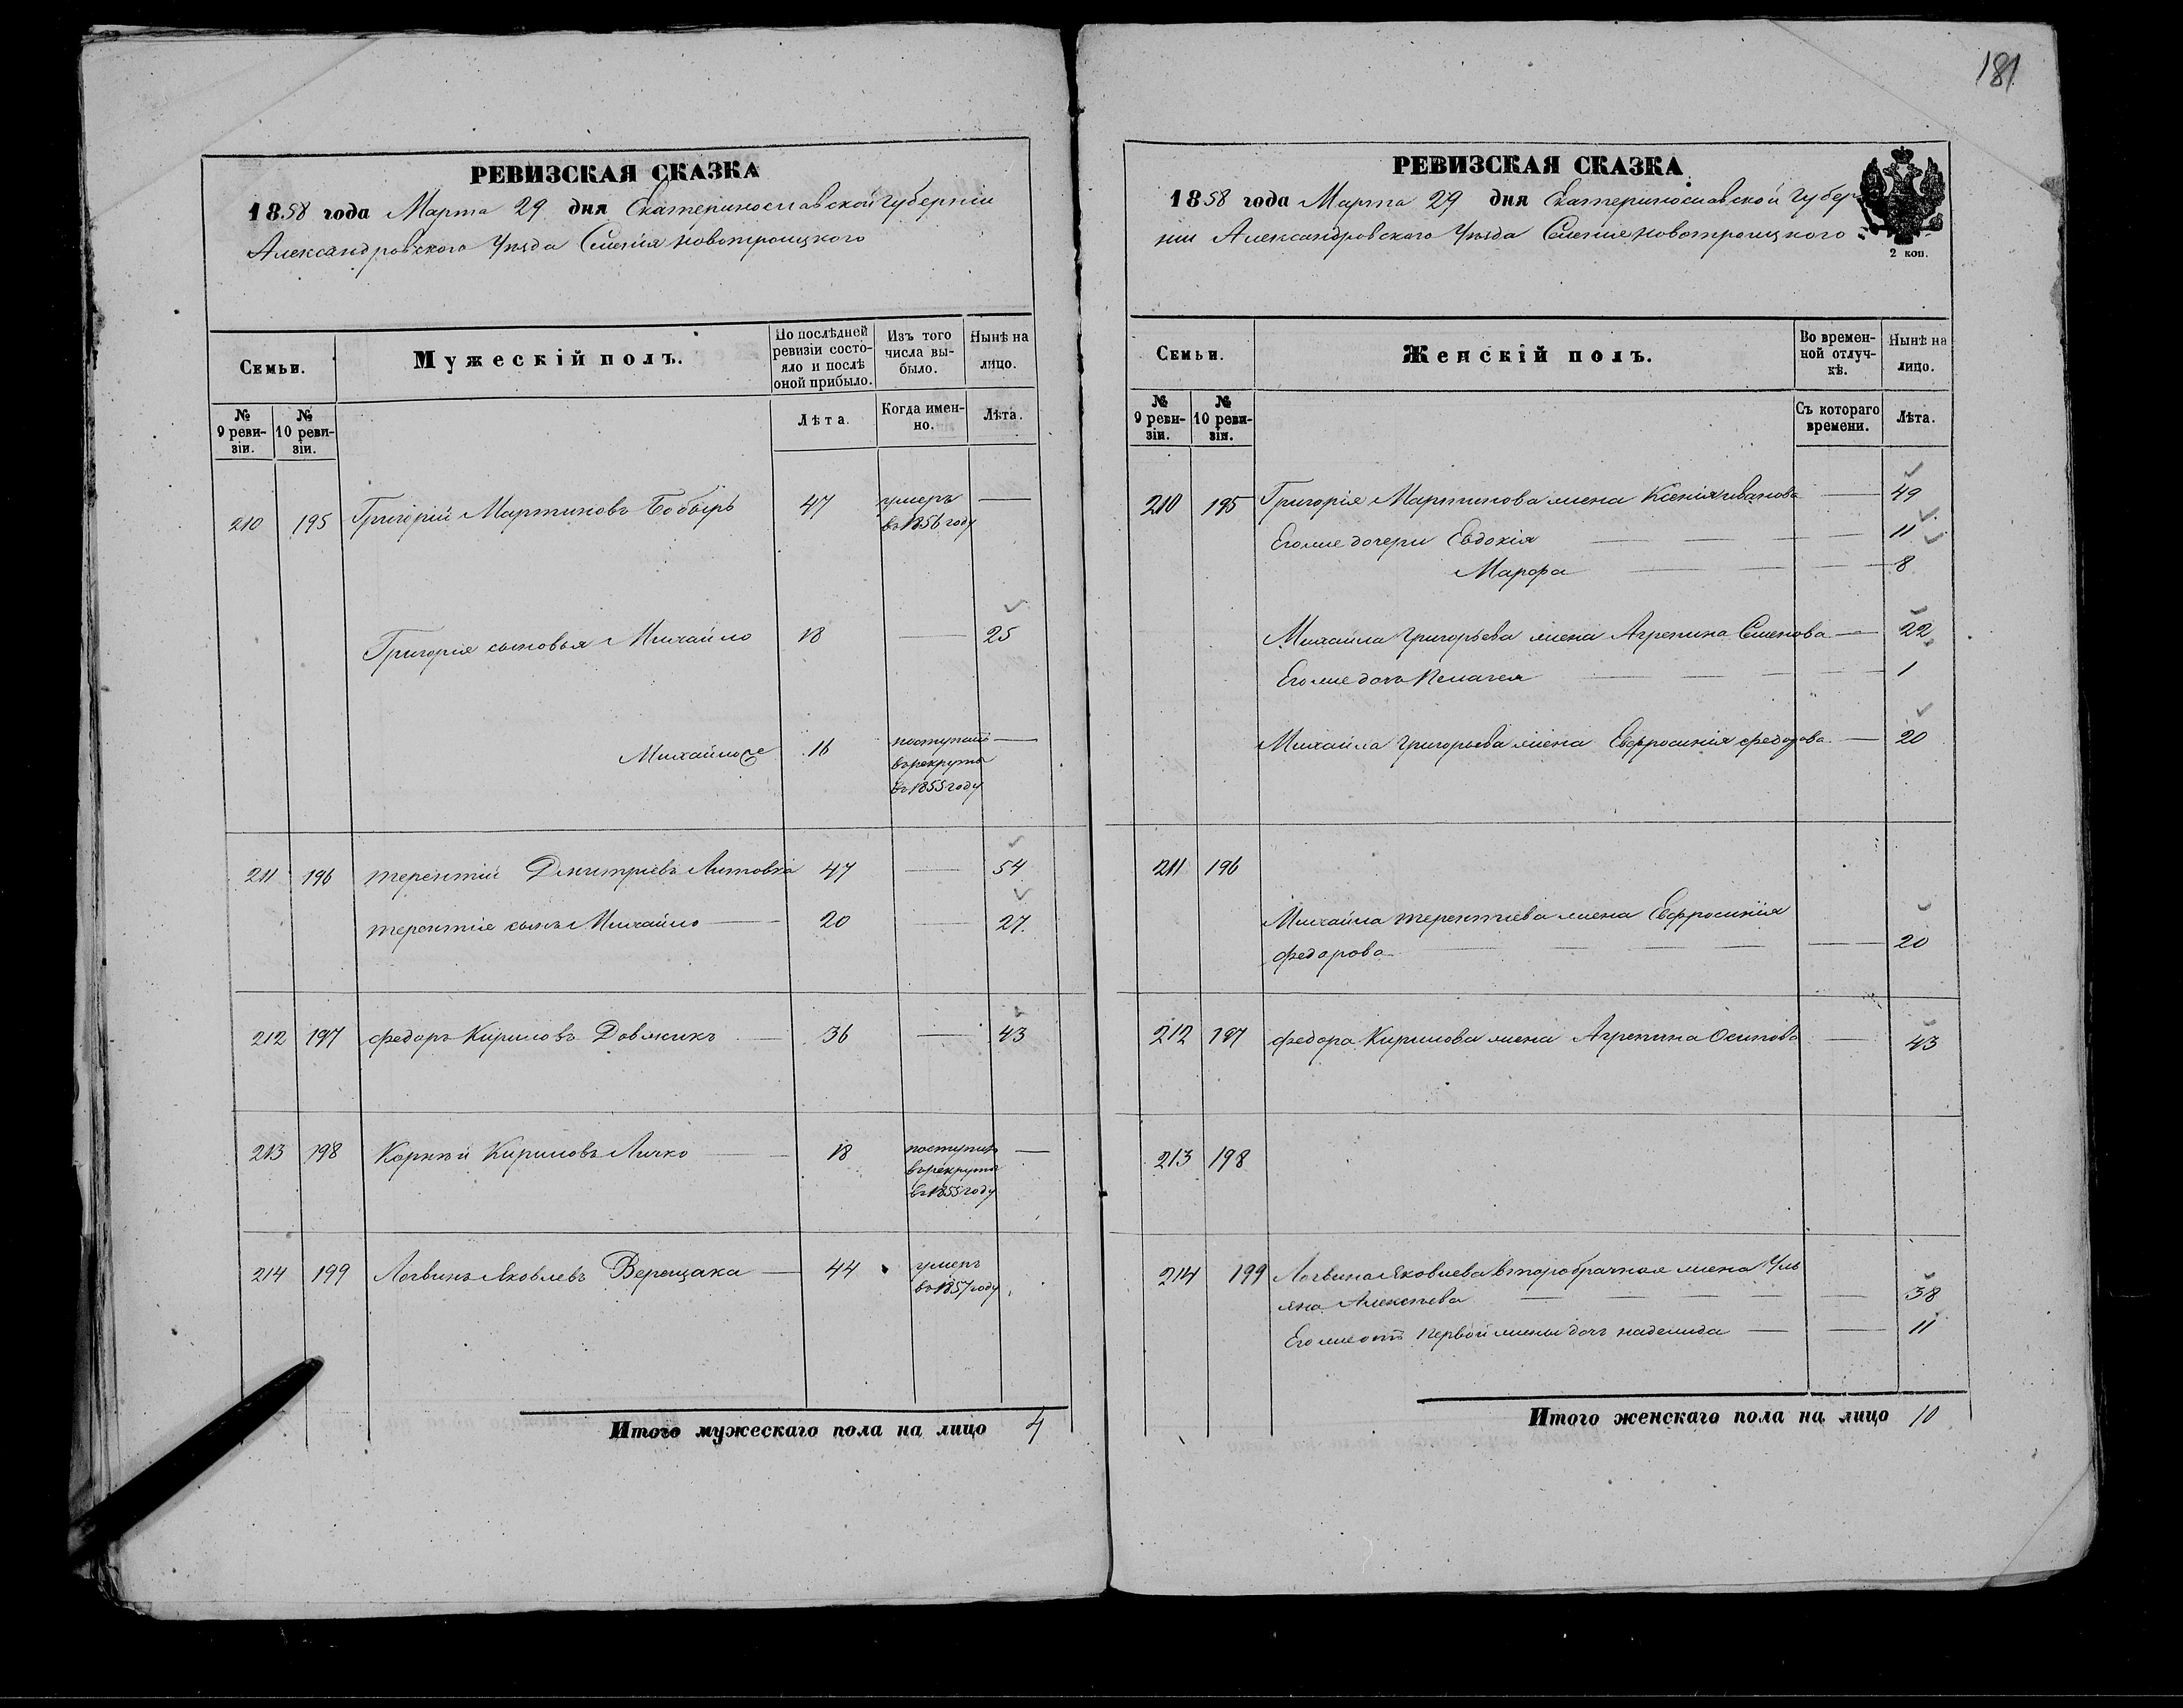 181
РЕВИЗСКАЯ СКАЗКА
1858 года Марта 29 дня Екатеринославской Губернии
Александровского Уѣзда Селенія Новотроицкого
Семьи.
Мужескій полъ.
По послѣдней ревизіи состояло и послѣ оной прибыло.
Изъ того числа выбыло.
Нынѣ на лицо.
№ 9 ревизіи.
№ 10 ревизіи.
Лѣта.
Когда именно.
Лѣта.
210 195 Григорій Мартиновъ Бобыръ 47 умеръ —
въ 1856 году
Григорія сыновья Михайло 18 — 25
Михайло 2е 16 поступилъ —
въ рекруты
въ 1855 году
211 196 Терентій Дмитріевъ Литовка 47 — 54
Терентія сынъ Михайло — 20 — 27
212 197 Федоръ Кириловъ Довжикъ — 36 — 43
213 198 Корнѣй Кириловъ Личко — 18 поступилъ —
въ рекруты
въ 1855 году
214 199 Логвинъ Яковлевъ Верещака — 44 умеръ
въ 1857 году
Итого мужескаго пола на лицо 4
РЕВИЗСКАЯ СКАЗКА
1858 года Марта 29 дня Екатеринославской Губер
ніи Александровского Уѣзда Селенія Новотроицкого
2 коп.
Семьи.
Женскій полъ.
Во временной отлучкѣ.
Нынѣ на лицо.
№ 9 ревизіи.
№ 10 ревизіи.
Съ котораго времени.
Лѣта.
210 195 Григорія Мартинова жена Ксенія Иванова — 49
Его же дочери Евдокія — — — — 11
Марфа — — — 8
Михайла Григорьева жена Агрепина Семенова — 22
Его же дочь Пелагея — — — — 1
Михайла Григорьева жена Евфросинія Федорова — 20
211 196
Михайла Терентіева жена Евфросинія
Федорова — — — — 20
212 197 Федора Кирилова жена Агрепина Осипова — 43
213 198
214 199 Логвина Яковлева второбрачная жена Уль
яна Алексѣева — — — — — 38
Его же отъ первой жены дочь Надежда — — 11
Итого женскаго пола на лицо 10